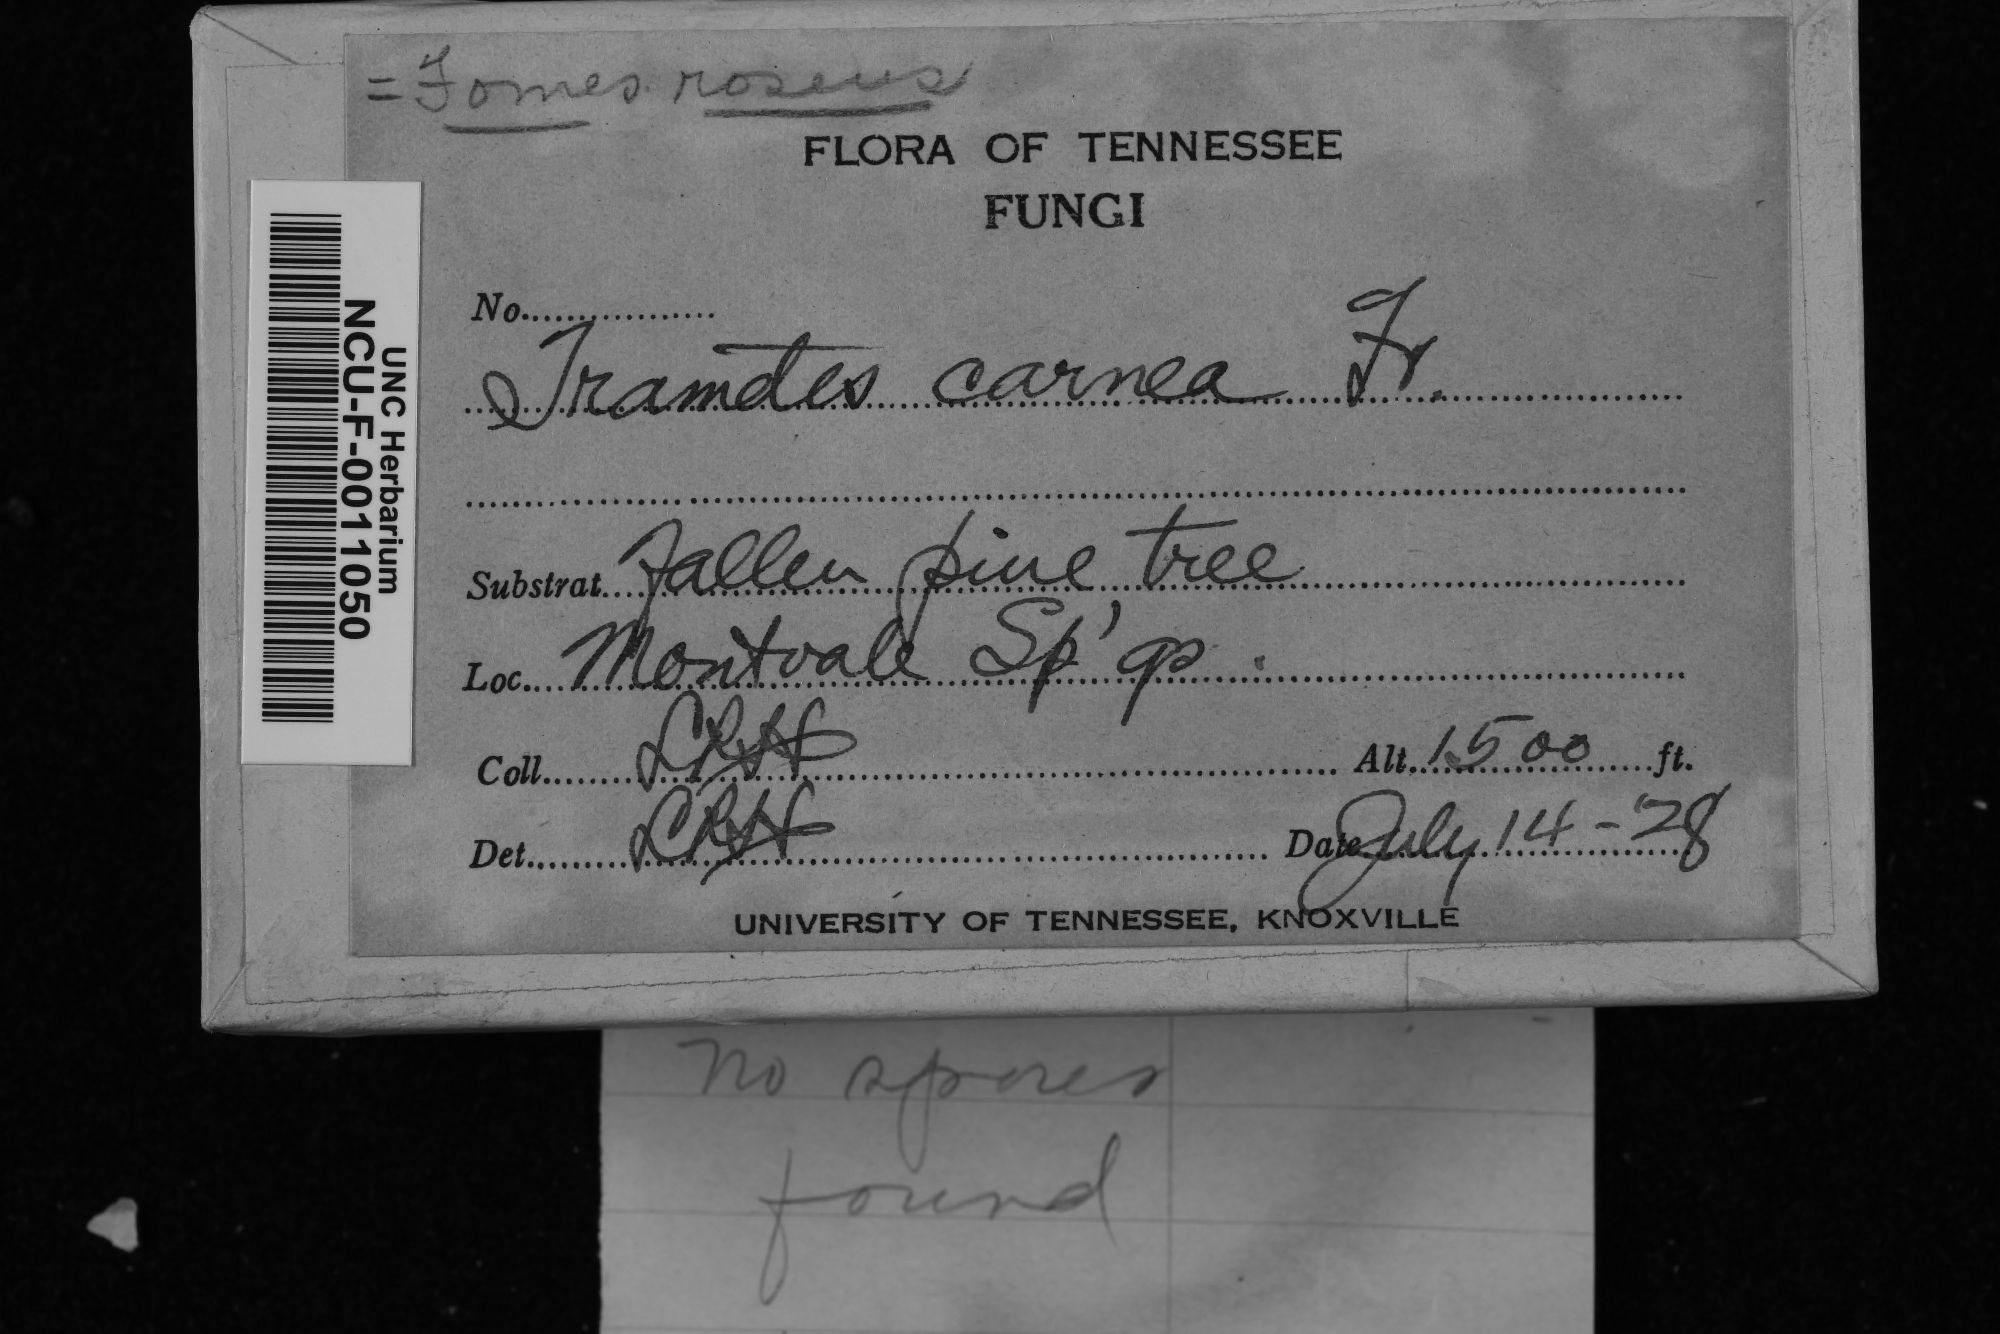 = Fomes roseus
FLORA OF TENNESSEE
FUNGI
No.
Trametes carnea Fr.
Substrat. fallen pine tree
Loc. Montvale Sp'gs.
Coll. LRH Alt. 1500 ft.
Det. LRH Date July 14-'28
UNIVERSITY OF TENNESSEE, KNOXVILLE
UNC Herbarium
NCU-F-0011050
No spores
found